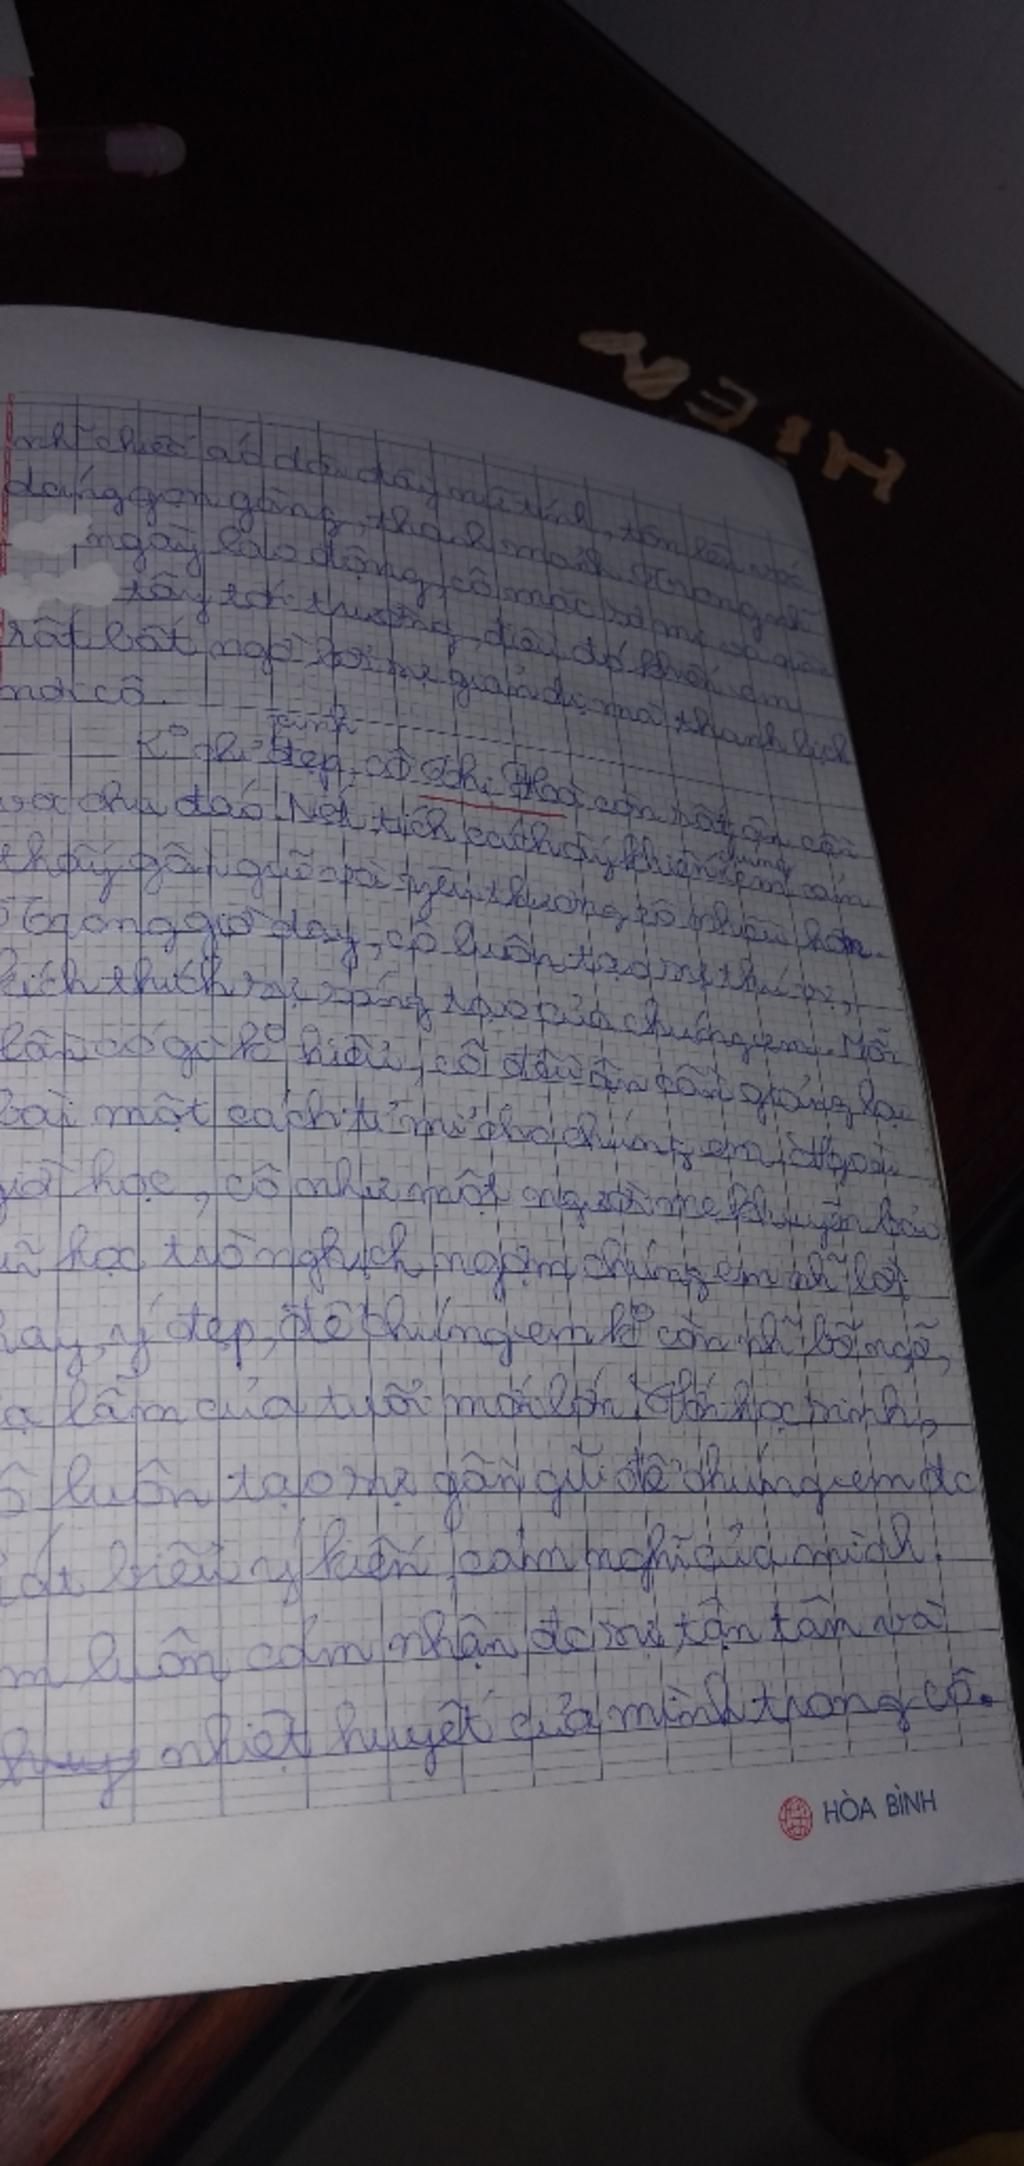 HiEN
nh~ chiếc áo dài đầy nữ tính, tôn lên vóc
dáng gọn gàng, thanh mảnh. Trong nh~
ngày lao động, cô mặc sơ mi và quần
tây tới trường, điều đó khiến em
rất bất ngờ bởi sự giản dị mà thanh lịch
nơi cô.
K° chỉ xinh đẹp, cô còn rất ân cần
và chu đáo. Nét tích cách ấy khiến chúng em cảm
thấy gần gũi và yêu thương cô nhiều hơn.
Trong giờ dạy, cô luôn tạo sự thú vị,
kích thích sự sáng tạo của chúng em. Mỗi
lần có gì k° hiểu, cô đều ân cần giảng lại
bài một cách tỉ mỉ cho chúng em. Ngoài
giờ học, cô như một người mẹ khuyên bảo
học trò nghịch ngợm chúng em nh~ lời
hay, ý đẹp, để chúng em k° còn nh~ bỡ ngỡ,
lầm của tuổi mới lớn. Với học sinh,
luôn tạo sự gần gũi để chúng em đc
phát biểu ý kiến, cảm nghĩ của mình.
em luôn cảm nhận đc sự tận tâm và
nhiệt huyết của mình trong cô.
HÒA BÌNH